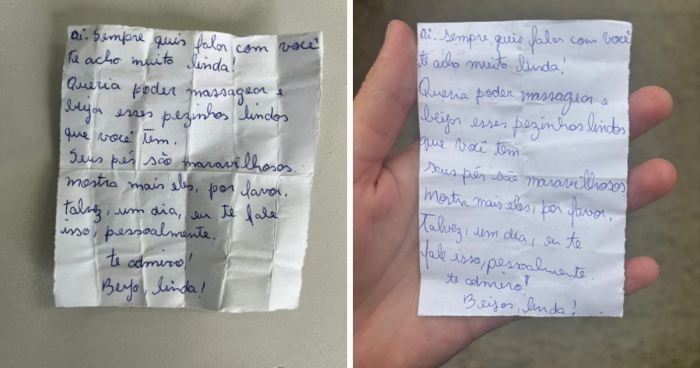 Oi. Sempre quis falar com você
te acho muito linda!
Queria poder massagear e
beijar esses pezinhos lindos
que você tem.
Seus pés são maravilhosos.
mostra mais eles, por favor.
Talvez, um dia, eu te fale
isso, pessoalmente.
te admiro!
Beijo, linda!
Oi. Sempre quis falar com você
te acho muito linda!
Queria poder massagear e
beijar esses pezinhos lindos
que você tem
seus pés são maravilhosos
Mostra mais eles, por favor.
Talvez, um dia, eu te
fale isso, pessoalmente.
te admiro!
Beijos, linda!